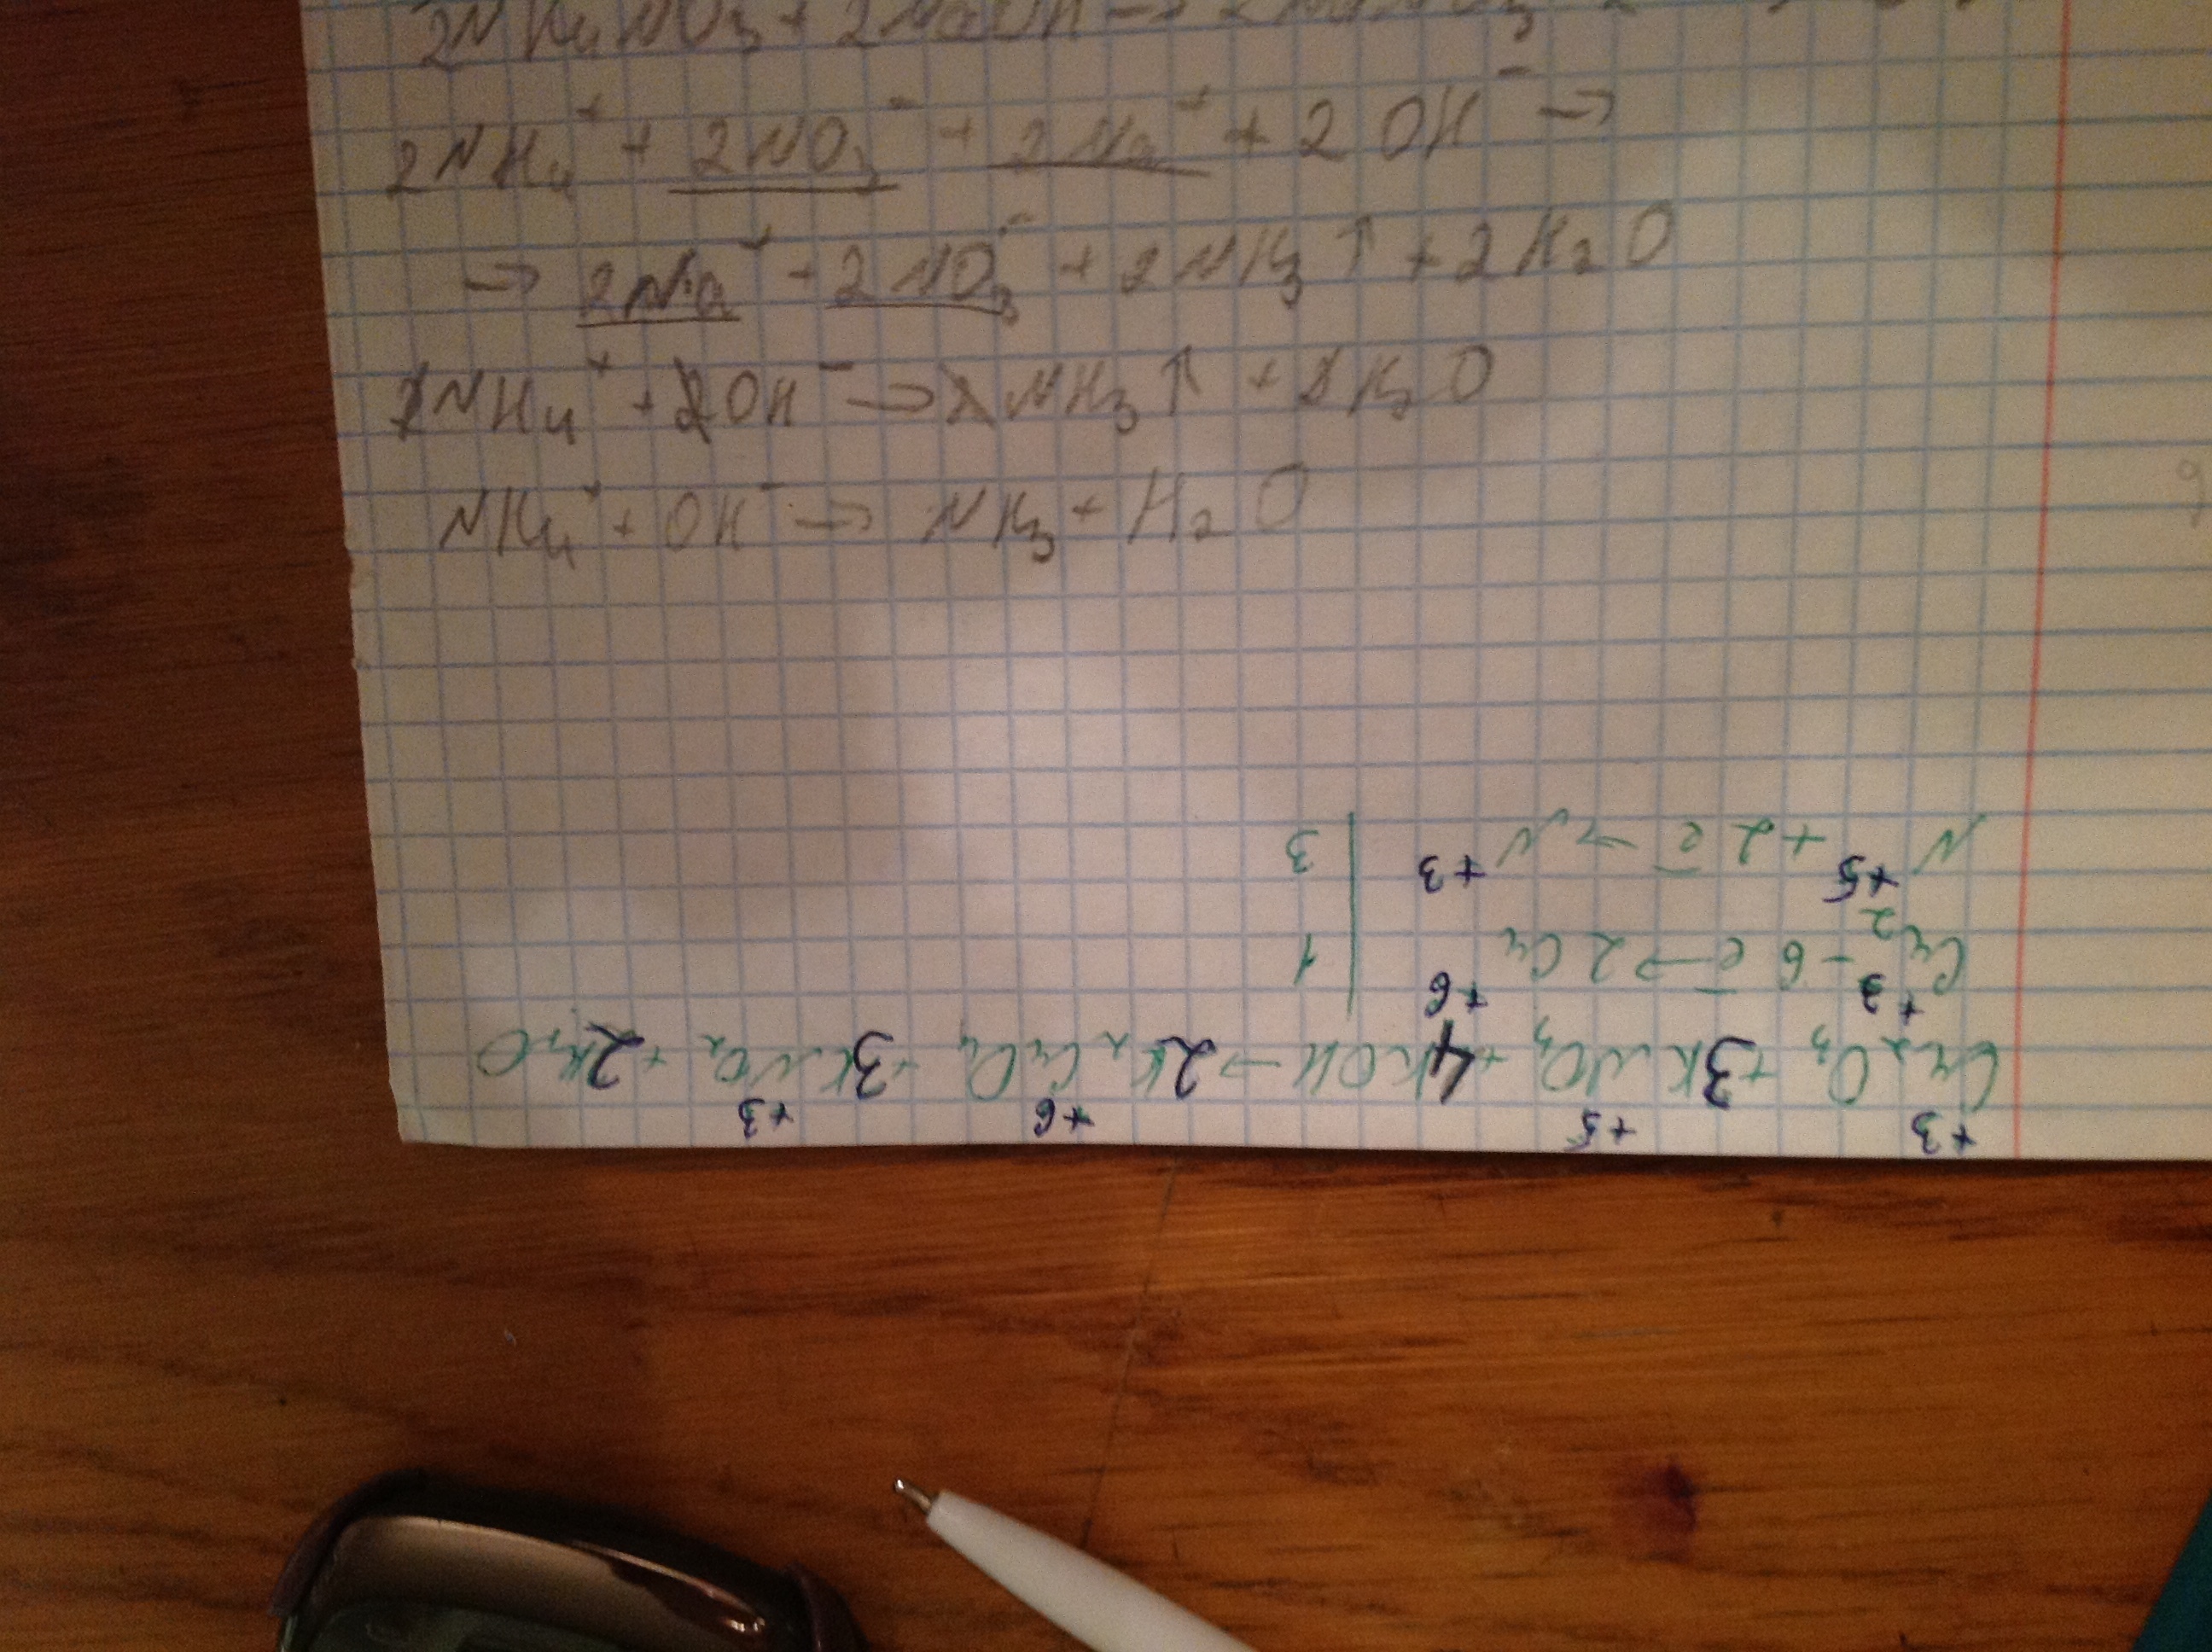 2NH₄NO₃ + 2NaOH → 2NaNO₃
2NH₄⁺ + 2NO₃⁻ + 2Na⁺ + 2OH⁻ →
→ 2Na⁺ + 2NO₃⁻ + 2NH₃↑ + 2H₂O
2NH₄⁺ + 2OH⁻ → 2NH₃↑ + 2H₂O
NH₄⁺ + OH⁻ → NH₃ + H₂O
+3 +5 +6 +3
Cr₂O₃ + 3KNO₃ + 4KOH → 2K₂CrO₄ + 3KNO₂ + 2H₂O
Cr₂⁺³ - 6e̅ → 2Cr⁺⁶ | 1
N⁺⁵ + 2e̅ → N⁺³ | 3